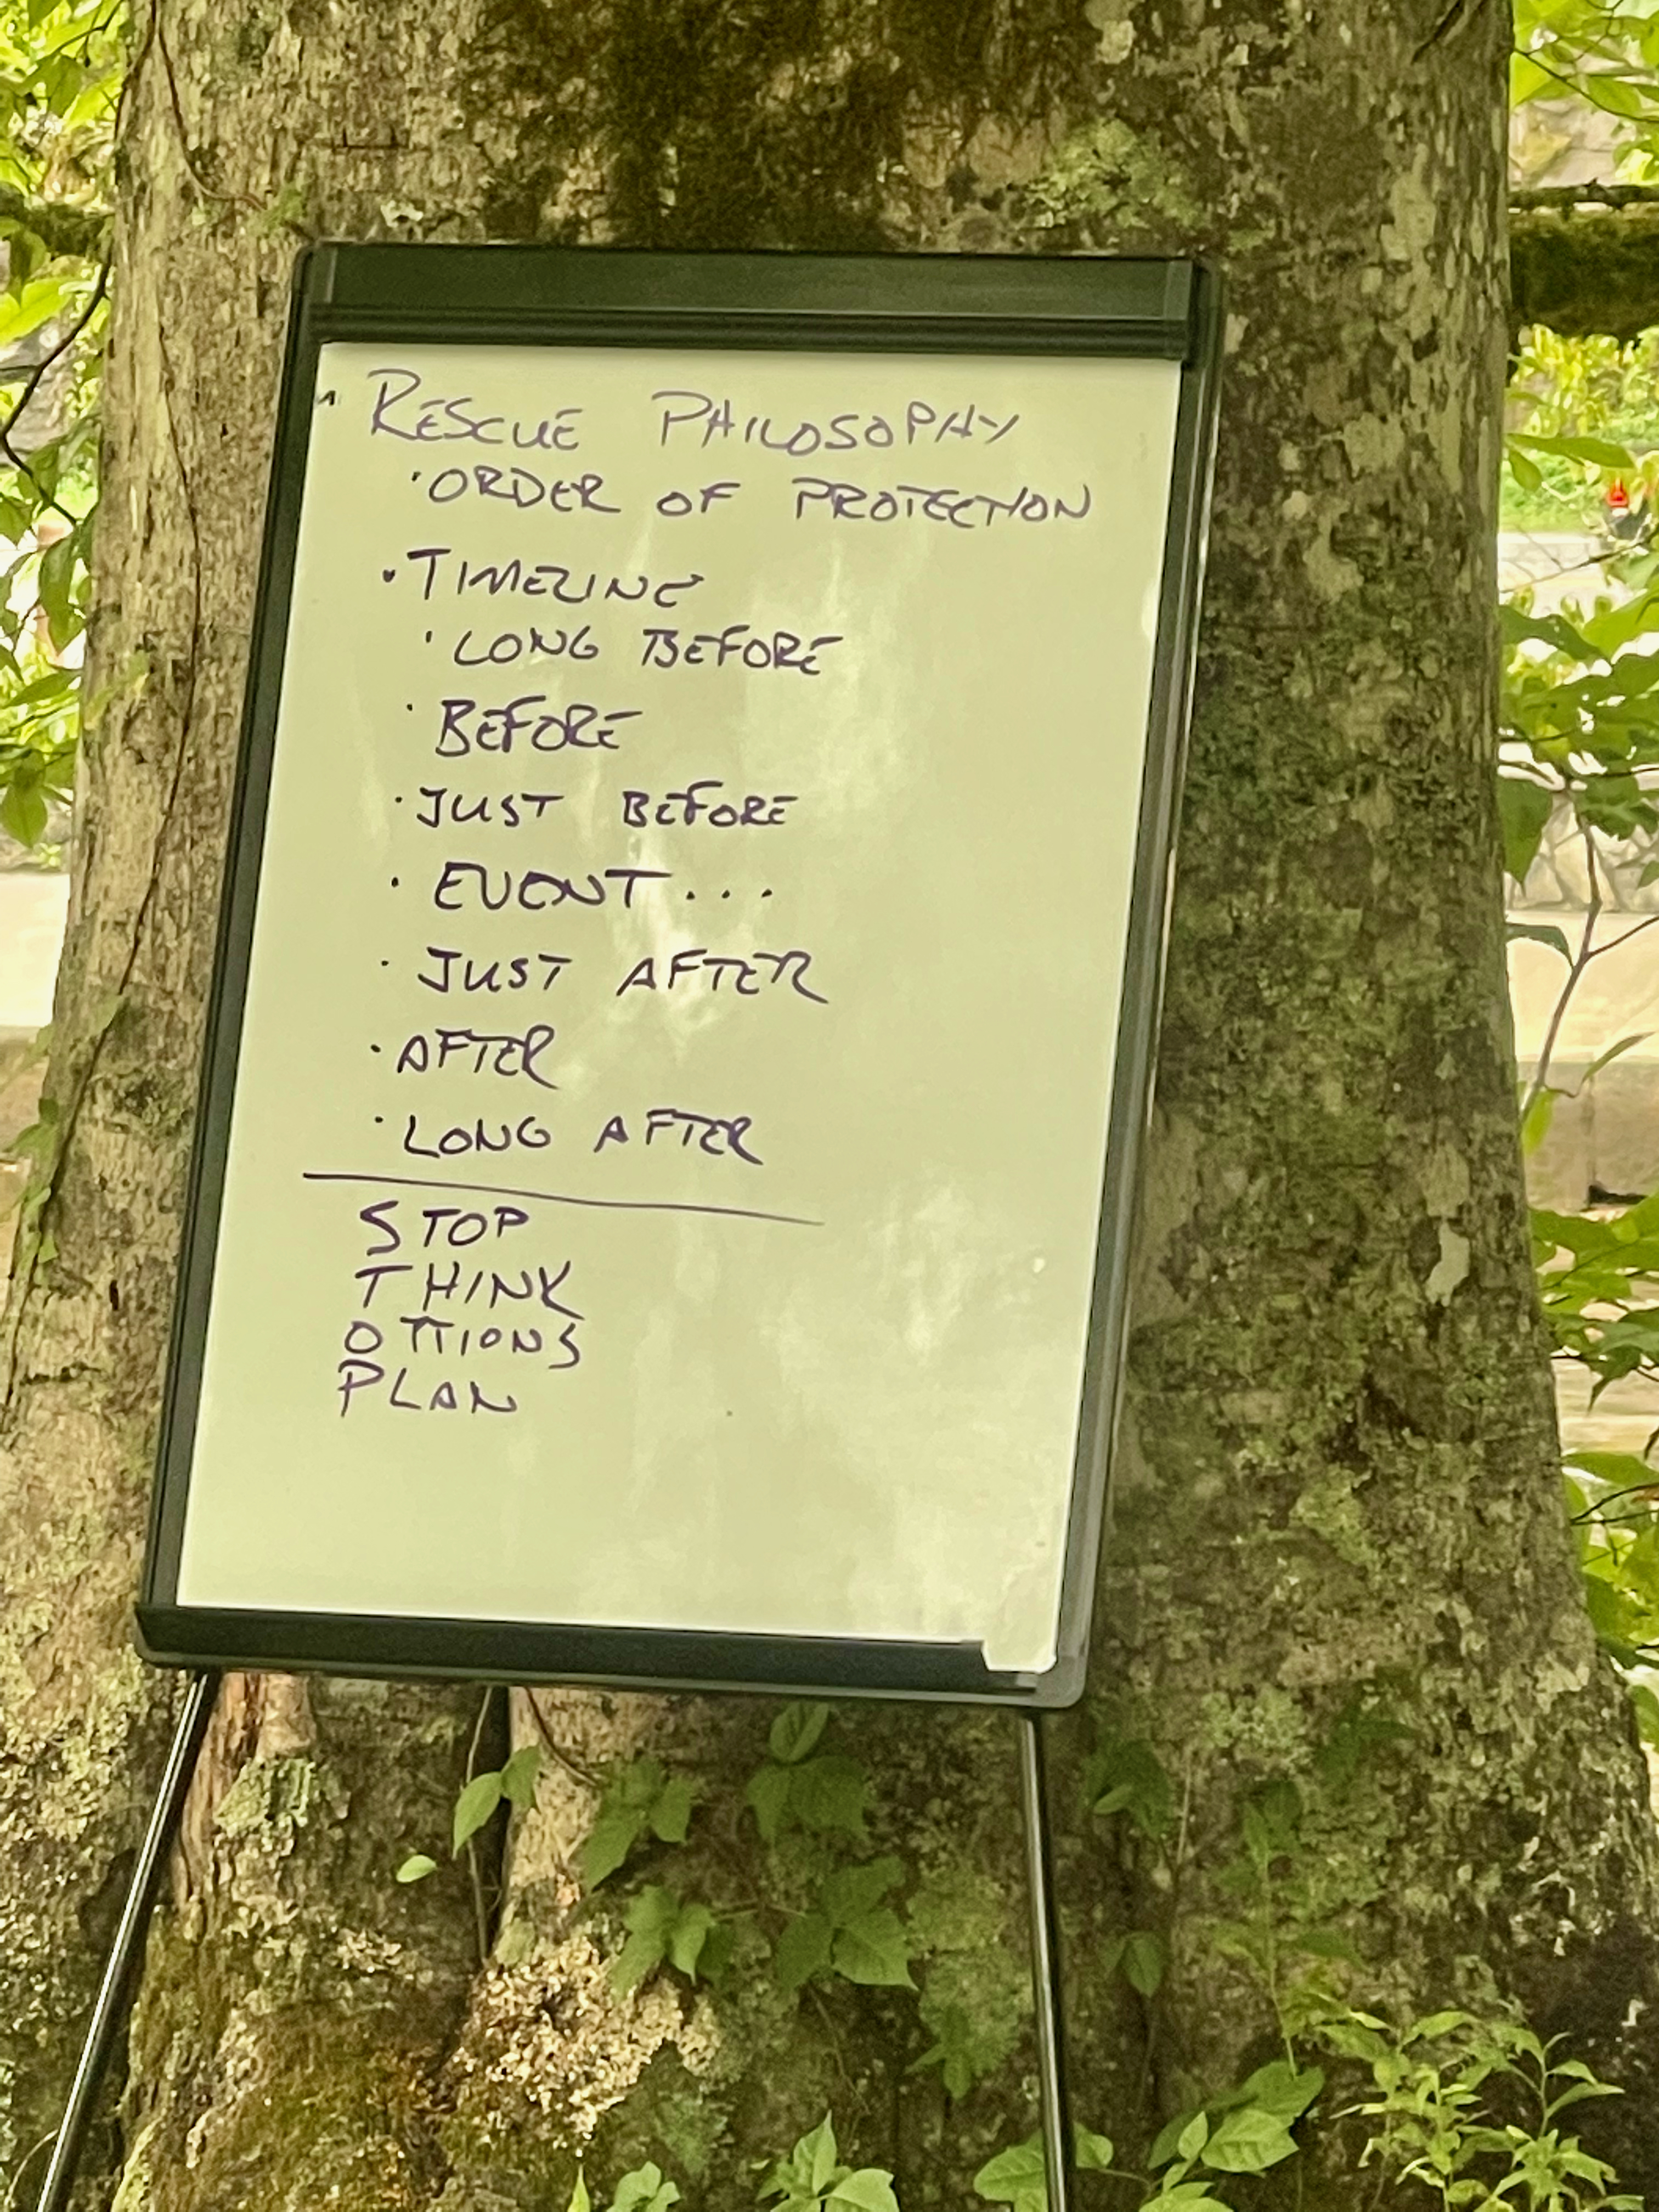 RESCUE PHILOSOPHY
· ORDER OF PROTECTION
· TIMELINE
· LONG BEFORE
· BEFORE
· JUST BEFORE
· EVENT...
· JUST AFTER
· AFTER
· LONG AFTER
STOP
THINK
OPTIONS
PLAN